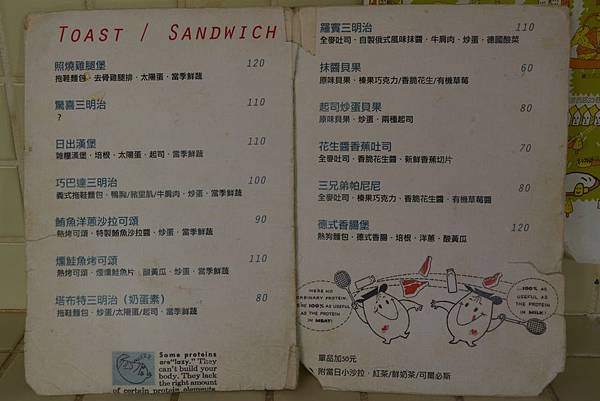 TOAST / SANDWICH
照燒雞腿堡 120
拖鞋麵包·去骨雞腿排·太陽蛋·當季鮮蔬
驚喜三明治 110
?
日出漢堡 110
雜糧漢堡·培根·太陽蛋·起司·當季鮮蔬
巧巴達三明治 100
義式拖鞋麵包·鴨胸/豬里肌/牛肩肉·炒蛋·當季鮮蔬
鮪魚洋蔥沙拉可頌 90
熱烤可頌·特製鮪魚沙拉醬·炒蛋·當季鮮蔬
燻鮭魚烤可頌 110
熱烤可頌·煙燻鮭魚片·酸黃瓜·炒蛋·當季鮮蔬
塔布特三明治（奶蛋素） 80
拖鞋麵包·炒蛋/太陽蛋/起司·當季鮮蔬
Some proteins
are "lazy." They
can't build your
body. They lack
the right amount
of certain protein elements
羅賓三明治 110
全麥吐司·自製俄式風味抹醬·牛肩肉·炒蛋·德國酸菜
抹醬貝果 60
原味貝果·榛果巧克力/香脆花生/有機草莓
起司炒蛋貝果 80
原味貝果·炒蛋·兩種起司
花生醬香蕉吐司 70
全麥吐司·香脆花生·新鮮香蕉切片
三兄弟帕尼尼 80
全麥吐司·榛果巧克力·香脆花生·有機草莓醬
德式香腸堡 120
熱狗麵包·德式香腸·培根·洋蔥·酸黃瓜
HERE NO
ORDINARY PROTEIN,
100% AS
USEFUL AS
THE PROTEIN
IN MEAT!
...100% AS
USEFUL
AS THE
PROTEIN
IN MILK!
單品加50元
附當日小沙拉，紅茶/鮮奶茶/可爾必斯